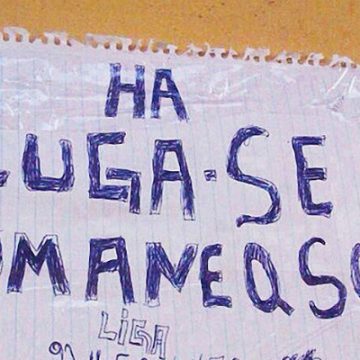 HA
LUGA-SE
UMANEQSO
LIGA